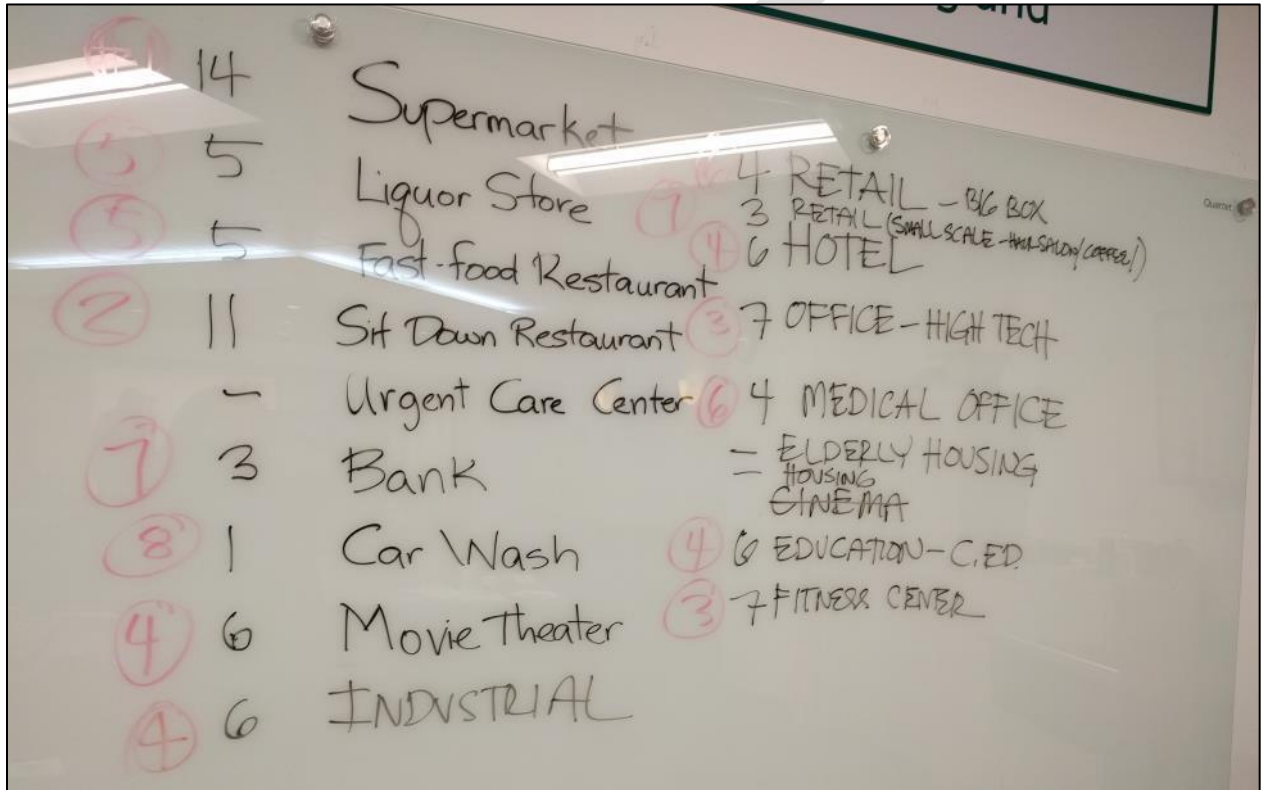 #1 14 Supermarket
5 5 Liquor Store
5 5 Fast-food Restaurant
2 11 Sit Down Restaurant
- Urgent Care Center
7 3 Bank
8 1 Car Wash
4 6 Movie Theater
4 6 INDUSTRIAL
6 4 RETAIL - BIG BOX
7 3 RETAIL (SMALL SCALE - HAIR SALON/COFFEE/)
4 6 HOTEL
3 7 OFFICE - HIGH TECH
6 4 MEDICAL OFFICE
- ELDERLY HOUSING
- HOUSING
CINEMA
4 6 EDUCATION - C.ED.
3 7 FITNESS CENER
Quartet